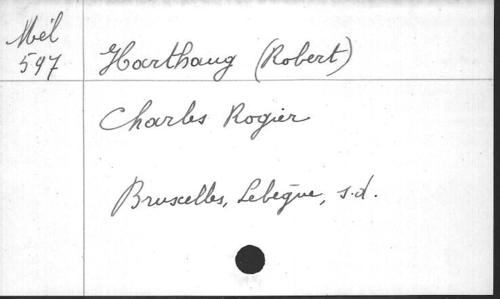 Mél
597
Harthaug (Robert)
Charles Rogier
Bruxelles, Lebègue, s.d.